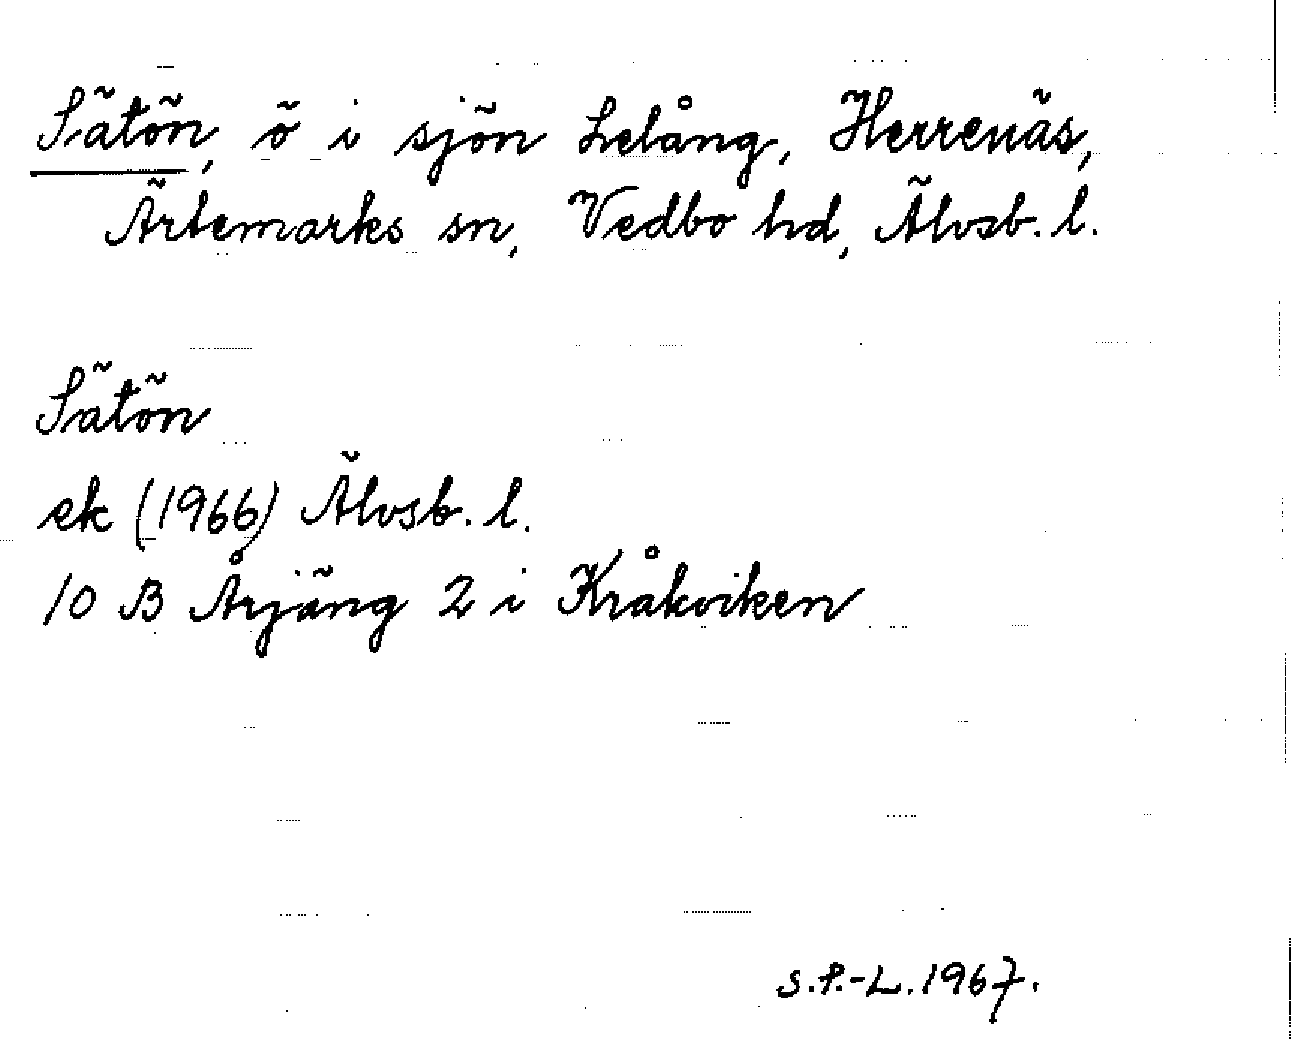 Sätön, ö i sjön Lelång, Herrenäs,
Ärtemarks sn, Vedbo hd, Älvsb. l.
Sätön
ek (1966) Älvsb. l.
10 B Årjäng 2 i Kråkviken
S.P.-L. 1967.